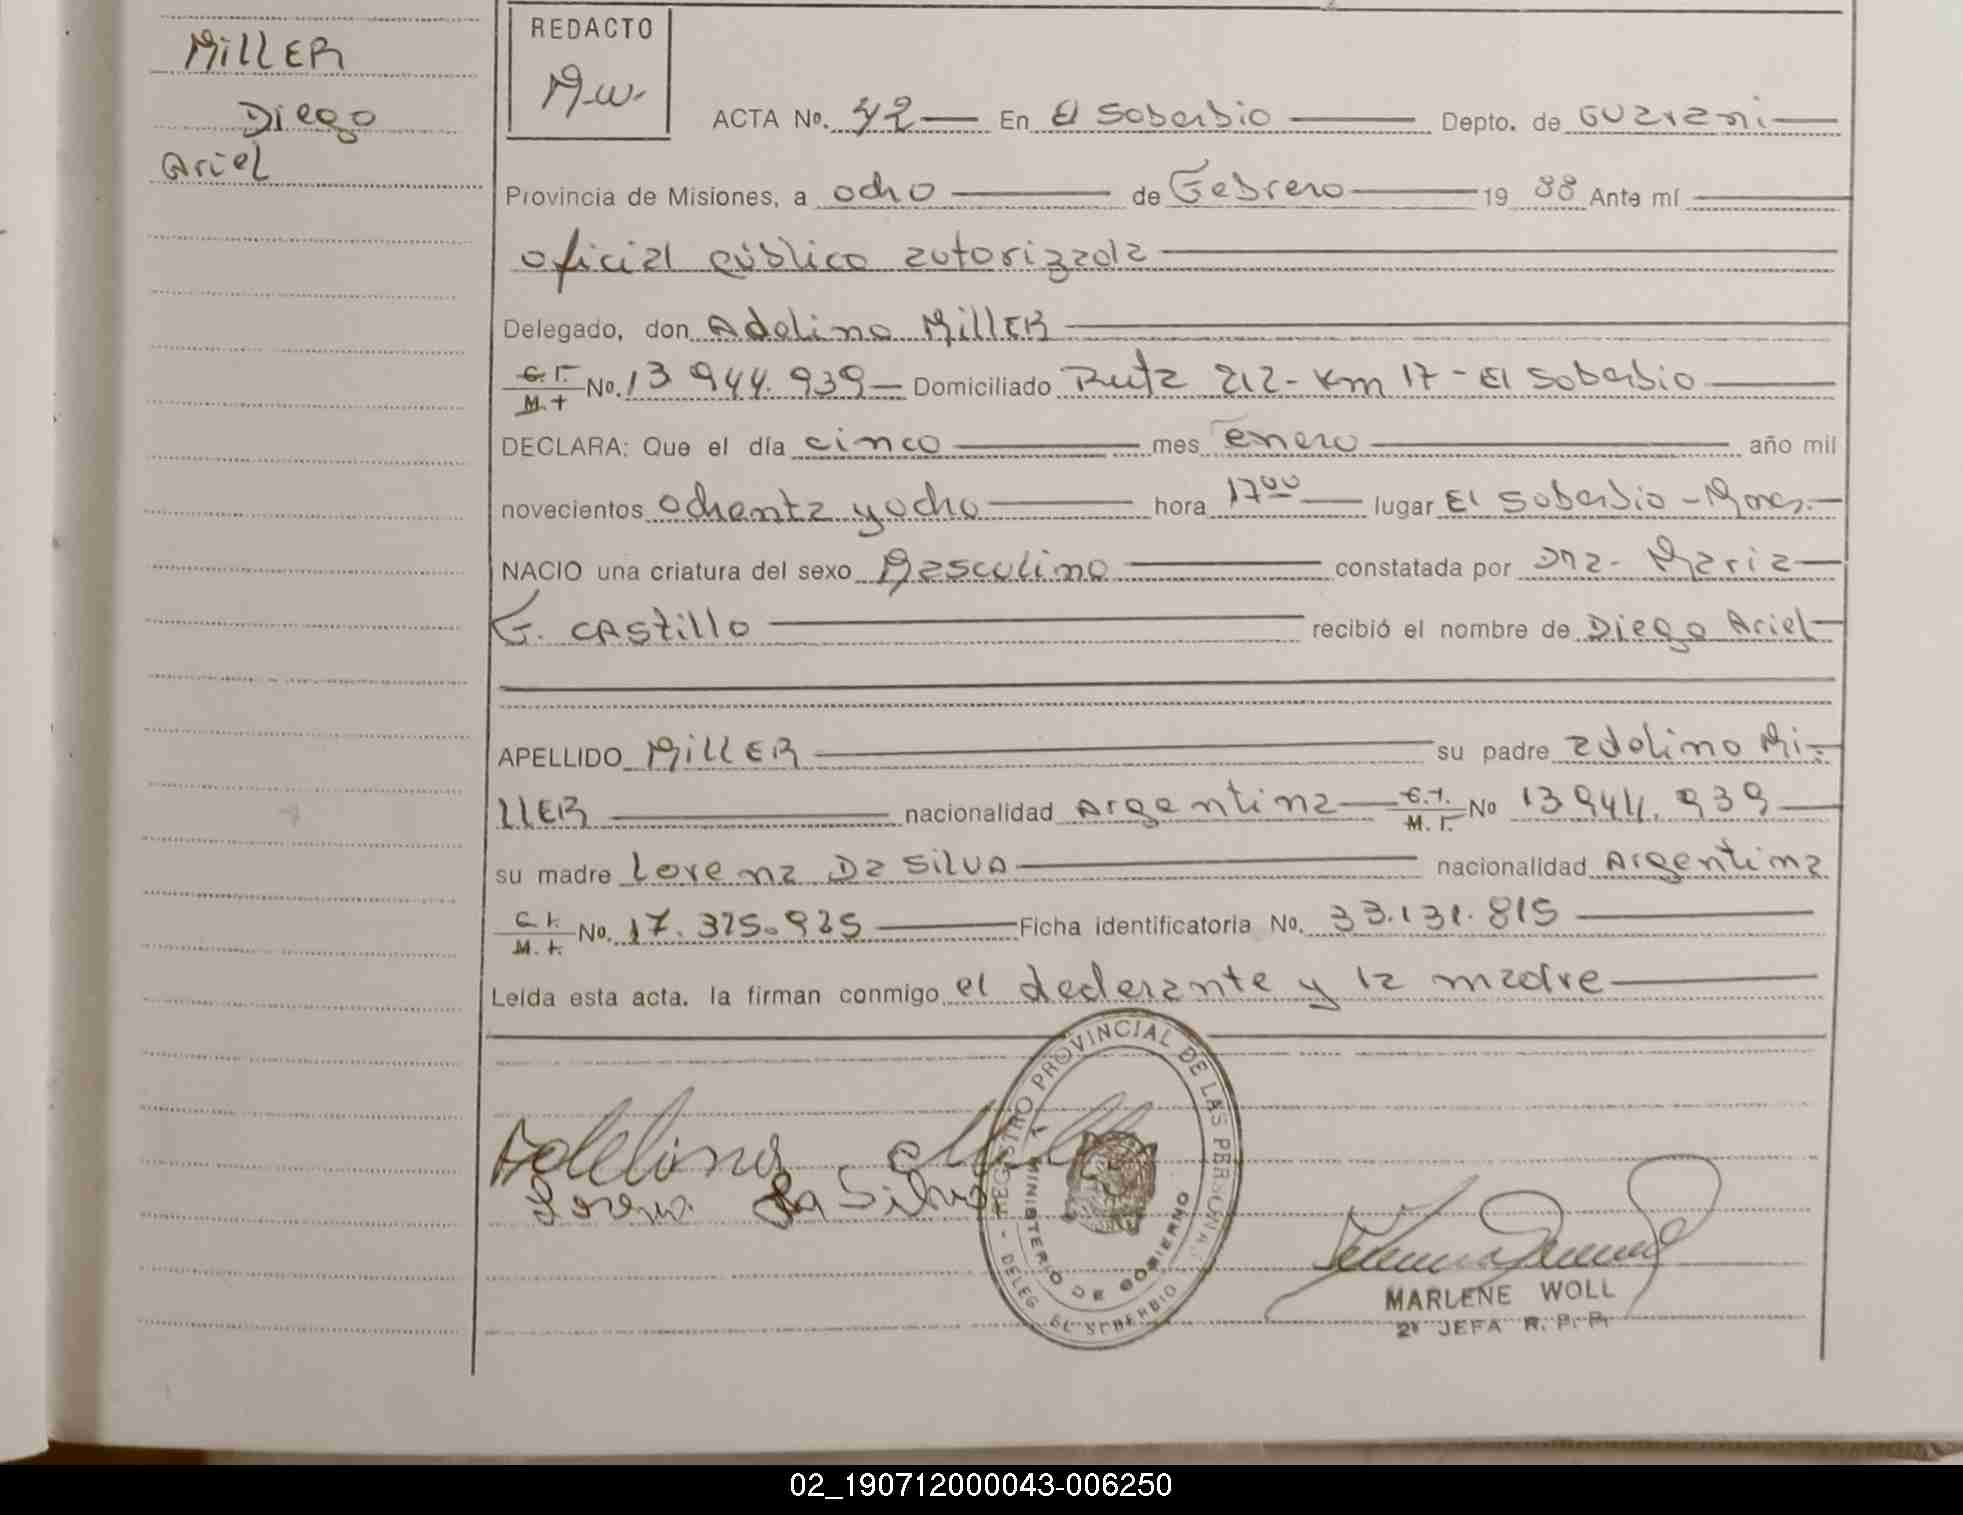 MillER
Diego
Ariel
REDACTO
M.w.
ACTA No. 42 En El Soberbio Depto. de Guarani
Provincia de Misiones, a ocho de Febrero 19 88 Ante mí
oficial público autorizada
Delegado, don Adelino MillER
C.I. M.I. No. 13 944.939 Domiciliado Ruta 212 - Km 17 - El Soberbio
DECLARA: Que el día cinco mes enero año mil
novecientos ochenta y ocho hora 17 00 lugar El Soberbio - Mnes.
NACIO una criatura del sexo Masculino constatada por Dña. Maria
G. CAStillo recibió el nombre de Diego Ariel
APELLIDO MillER su padre adelino Mi-
llER nacionalidad Argentina C.I. M.I. No 13 944.939
su madre Lorena Da SilVA nacionalidad Argentina
C.I. M.I. No. 17.375.925 Ficha identificatoria No. 33.131.815
Leída esta acta. la firman conmigo el declarante y la madre
REGISTRO PROVINCIAL DE LAS PERSONAS
MINISTERIO DE GOBIERNO
- DELEG. EL SOBERBIO
Adelino Miller
Lorena Da Silva
MARLENE WOLL
2ª JEFA R. P. P.
02_190712000043-006250